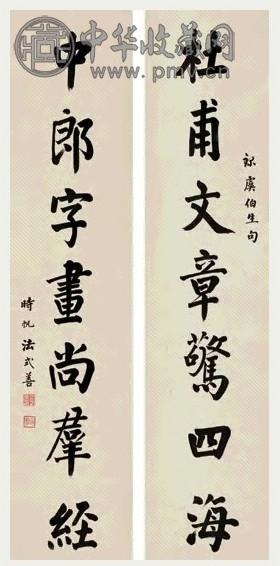 中华收藏网
www.pmv.cn
杜甫文章驚四海
錄虞伯生句
中郎字畫尚羣經
時帆法式善